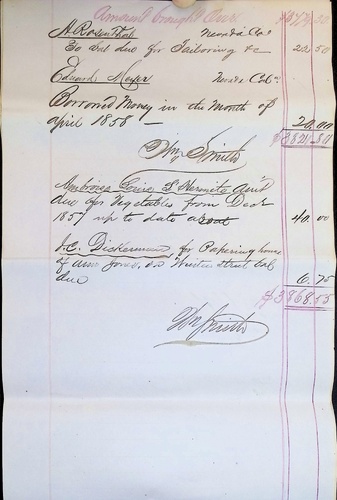 Amount brought Over $3779.30
A Rosenthal Nevada Cal
To Bal due for Tailoring &c 22.50
Edward Meyer Nevada Cal
Borrowed Money in the Month of
April 1858 — 20.00
$3821.80
Wm Smith
due for Vegetables from Dec
1857 up to date 40.00
J.C. Dickerman for Papering house
of on Street Cal
due 6.75
$3868.55
Wm Smith